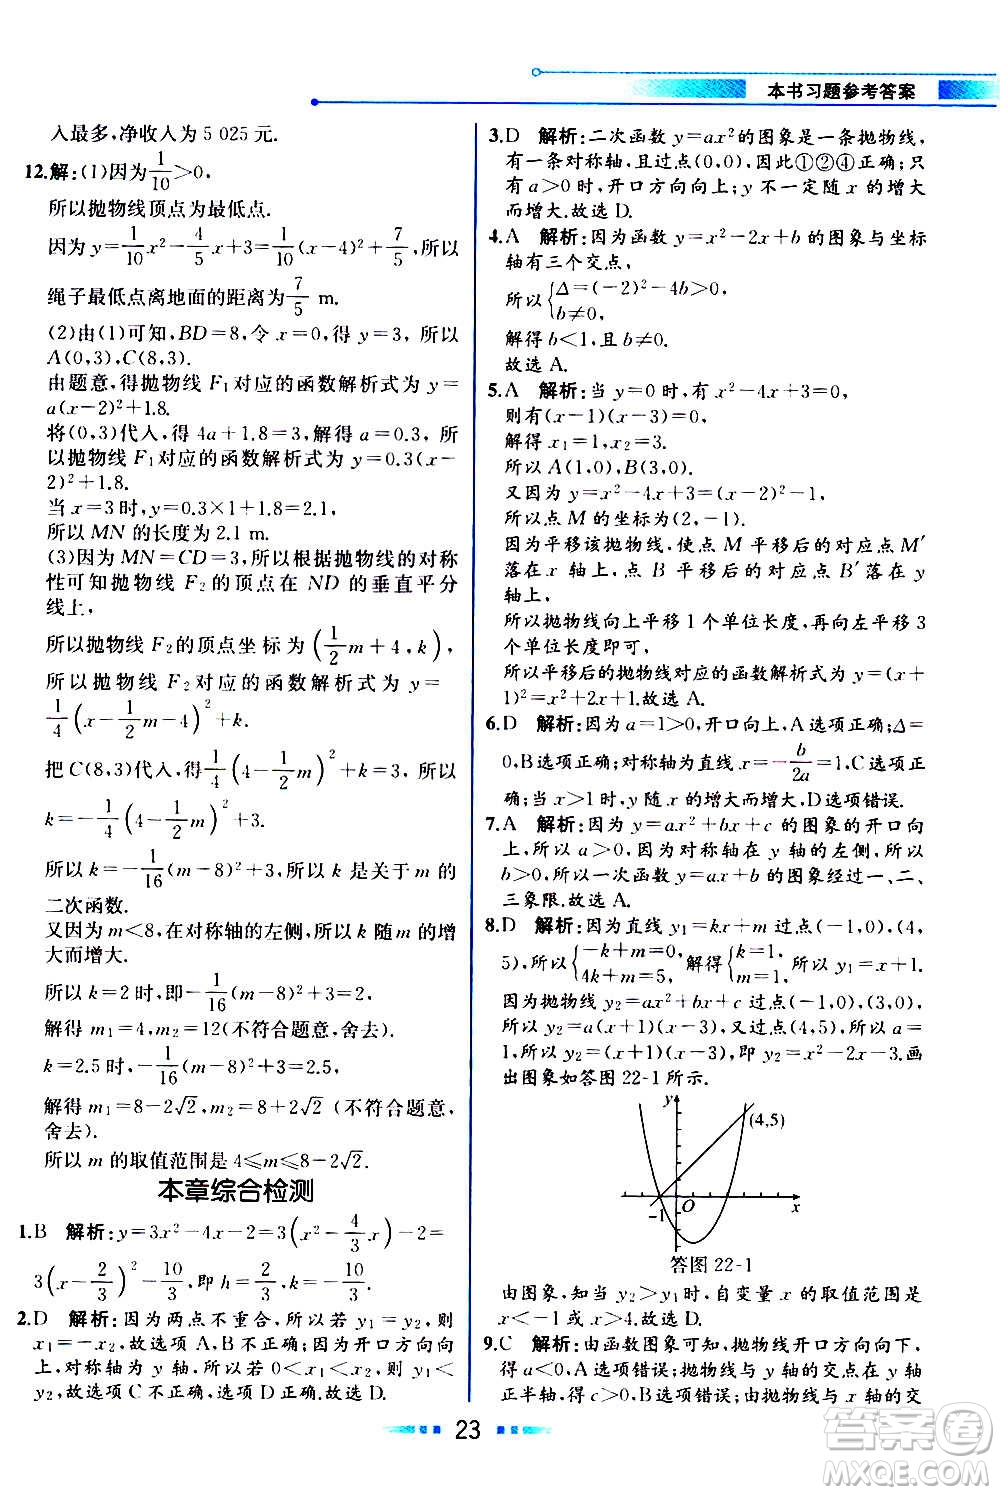 本书习题参考答案
入最多,净收入为 5 025 元.
12.解:(1)因为1/10>0,
所以抛物线顶点为最低点.
因为 y=1/10x²-4/5x+3=1/10(x-4)²+7/5,所以
绳子最低点离地面的距离为7/5 m.
(2)由(1)可知,BD=8,令 x=0,得 y=3,所以
A(0,3),C(8,3).
由题意,得抛物线 F₁对应的函数解析式为 y=
a(x-2)²+1.8.
将(0,3)代入,得 4a+1.8=3,解得 a=0.3,所
以抛物线 F₁对应的函数解析式为 y=0.3(x-
2)²+1.8.
当 x=3 时,y=0.3×1+1.8=2.1,
所以 MN 的长度为 2.1 m.
(3)因为 MN=CD=3,所以根据抛物线的对称
性可知抛物线 F₂的顶点在 ND 的垂直平分
线上,
所以抛物线 F₂的顶点坐标为(1/2m+4,k),
所以抛物线 F₂对应的函数解析式为 y=
1/4(x-1/2m-4)²+k.
把 C(8,3)代入,得1/4(4-1/2m)²+k=3,所以
k=-1/4(4-1/2m)²+3.
所以 k=-1/16(m-8)²+3,所以 k 是关于 m 的
二次函数.
又因为 m<8,在对称轴的左侧,所以 k 随 m 的增
大而增大.
所以 k=2 时,即-1/16(m-8)²+3=2,
解得 m₁=4,m₂=12(不符合题意,舍去).
k=2.5 时,-1/16(m-8)²+3=2.5,
解得 m₁=8-2√2,m₂=8+2√2(不符合题意,
舍去).
所以 m 的取值范围是 4≤m≤8-2√2.
本章综合检测
1.B 解析:y=3x²-4x-2=3(x²-4/3x)-2=
3(x-2/3)²-10/3,即 h=2/3,k=-10/3.
2.D 解析:因为两点不重合,所以若 y₁=y₂,则
x₁=-x₂,故选项 A,B 不正确;因为开口方向向
上,对称轴为 y 轴,所以若 0<x₁<x₂,则 y₁<
y₂,故选项 C 不正确,选项 D 正确.故选 D.
3.D 解析:二次函数 y=ax²的图象是一条抛物线,
有一条对称轴,且过点(0,0),因此①②④正确;只
有 a>0 时,开口方向向上;y 不一定随 x 的增大
而增大.故选 D.
4.A 解析:因为函数 y=x²-2x+b 的图象与坐标
轴有三个交点,
所以{Δ=(-2)²-4b>0,
b≠0,
解得 b<1,且 b≠0.
故选 A.
5.A 解析:当 y=0 时,有 x²-4x+3=0,
则有(x-1)(x-3)=0,
解得 x₁=1,x₂=3.
所以 A(1,0),B(3,0).
又因为 y=x²-4x+3=(x-2)²-1,
所以点 M 的坐标为(2,-1).
因为平移该抛物线,使点 M 平移后的对应点 M′
落在 x 轴上,点 B 平移后的对应点 B′落在 y
轴上,
所以抛物线向上平移 1 个单位长度,再向左平移 3
个单位长度即可,
所以平移后的抛物线对应的函数解析式为 y=(x+
1)²=x²+2x+1.故选 A.
6.D 解析:因为 a=1>0,开口向上,A选项正确;Δ=
0,B选项正确;对称轴为直线 x=-b/2a=1,C选项正
确;当 x>1 时,y 随 x 的增大而增大,D选项错误.
7.A 解析:因为 y=ax²+bx+c 的图象的开口向
上,所以 a>0,因为对称轴在 y 轴的左侧,所以
b>0,所以一次函数 y=ax+b 的图象经过一、二、
三象限.故选 A.
8.D 解析:因为直线 y₁=kx+m 过点(-1,0),(4,
5),所以{-k+m=0,4k+m=5,解得{k=1,m=1,所以 y₁=x+1.
因为抛物线 y₂=ax²+bx+c 过点(-1,0),(3,0),
所以 y₂=a(x+1)(x-3),又过点(4,5),所以 a=
1,所以 y₂=(x+1)(x-3),即 y₂=x²-2x-3.画
出图象如答图 22-1 所示.
y
(4,5)
-1 O x
答图 22-1
由图象,可知若 y₂>y₁,自变量 x 的取值范围是
x<-1 或 x>4.故选 D.
9.C 解析:由函数图象可知,抛物线开口方向向下,
得 a<0,A选项错误;抛物线与 y 轴的交点在 y 轴
正半轴,得 c>0,B选项错误;抛物线与 x 轴的交
23
答案圈
MXQE.COM